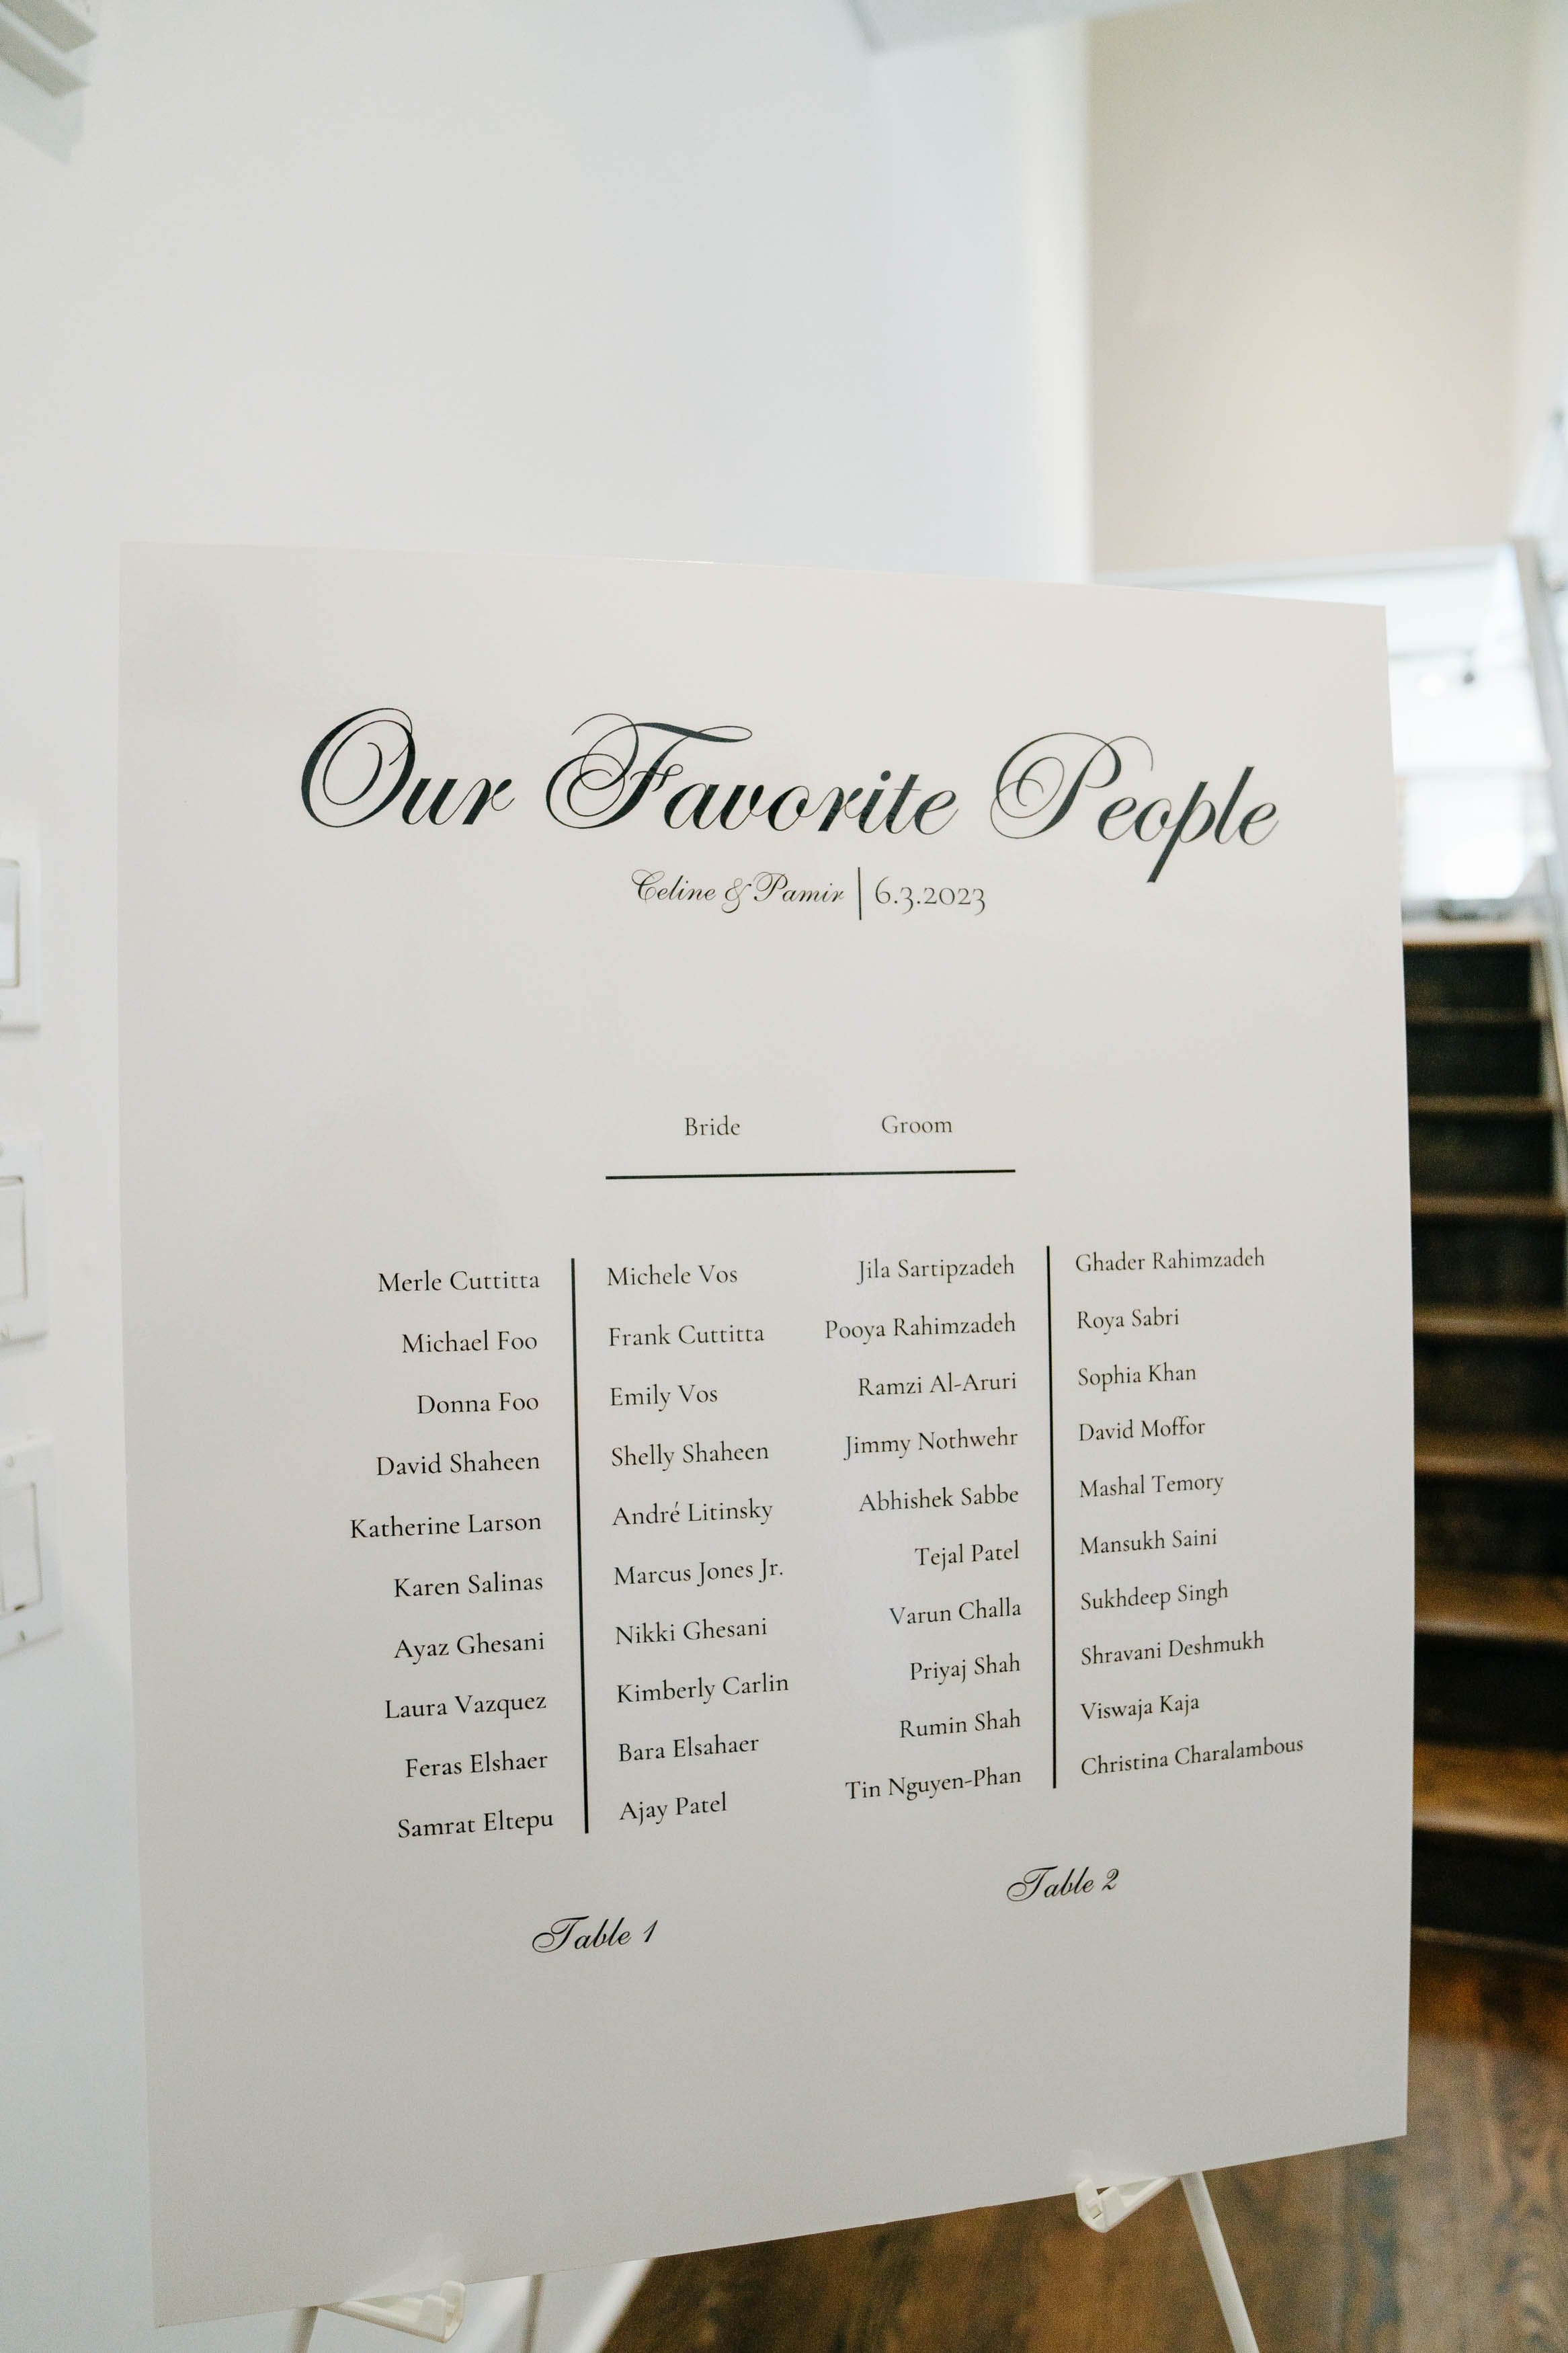 Our Favorite People
Celine & Pamir | 6.3.2023
Bride Groom
Merle Cuttitta
Michael Foo
Donna Foo
David Shaheen
Katherine Larson
Karen Salinas
Ayaz Ghesani
Laura Vazquez
Feras Elshaer
Samrat Eltepu
Michele Vos
Frank Cuttitta
Emily Vos
Shelly Shaheen
André Litinsky
Marcus Jones Jr.
Nikki Ghesani
Kimberly Carlin
Bara Elsahaer
Ajay Patel
Table 1
Jila Sartipzadeh
Pooya Rahimzadeh
Ramzi Al-Aruri
Jimmy Nothwehr
Abhishek Sabbe
Tejal Patel
Varun Challa
Priyaj Shah
Rumin Shah
Tin Nguyen-Phan
Ghader Rahimzadeh
Roya Sabri
Sophia Khan
David Moffor
Mashal Temory
Mansukh Saini
Sukhdeep Singh
Shravani Deshmukh
Viswaja Kaja
Christina Charalambous
Table 2